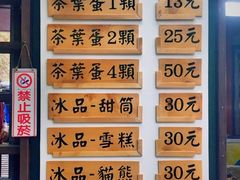 茶葉蛋1顆 13元
茶葉蛋2顆 25元
茶葉蛋4顆 50元
冰品-甜筒 30元
冰品-雪糕 30元
冰品-貓熊 30元
禁止吸菸